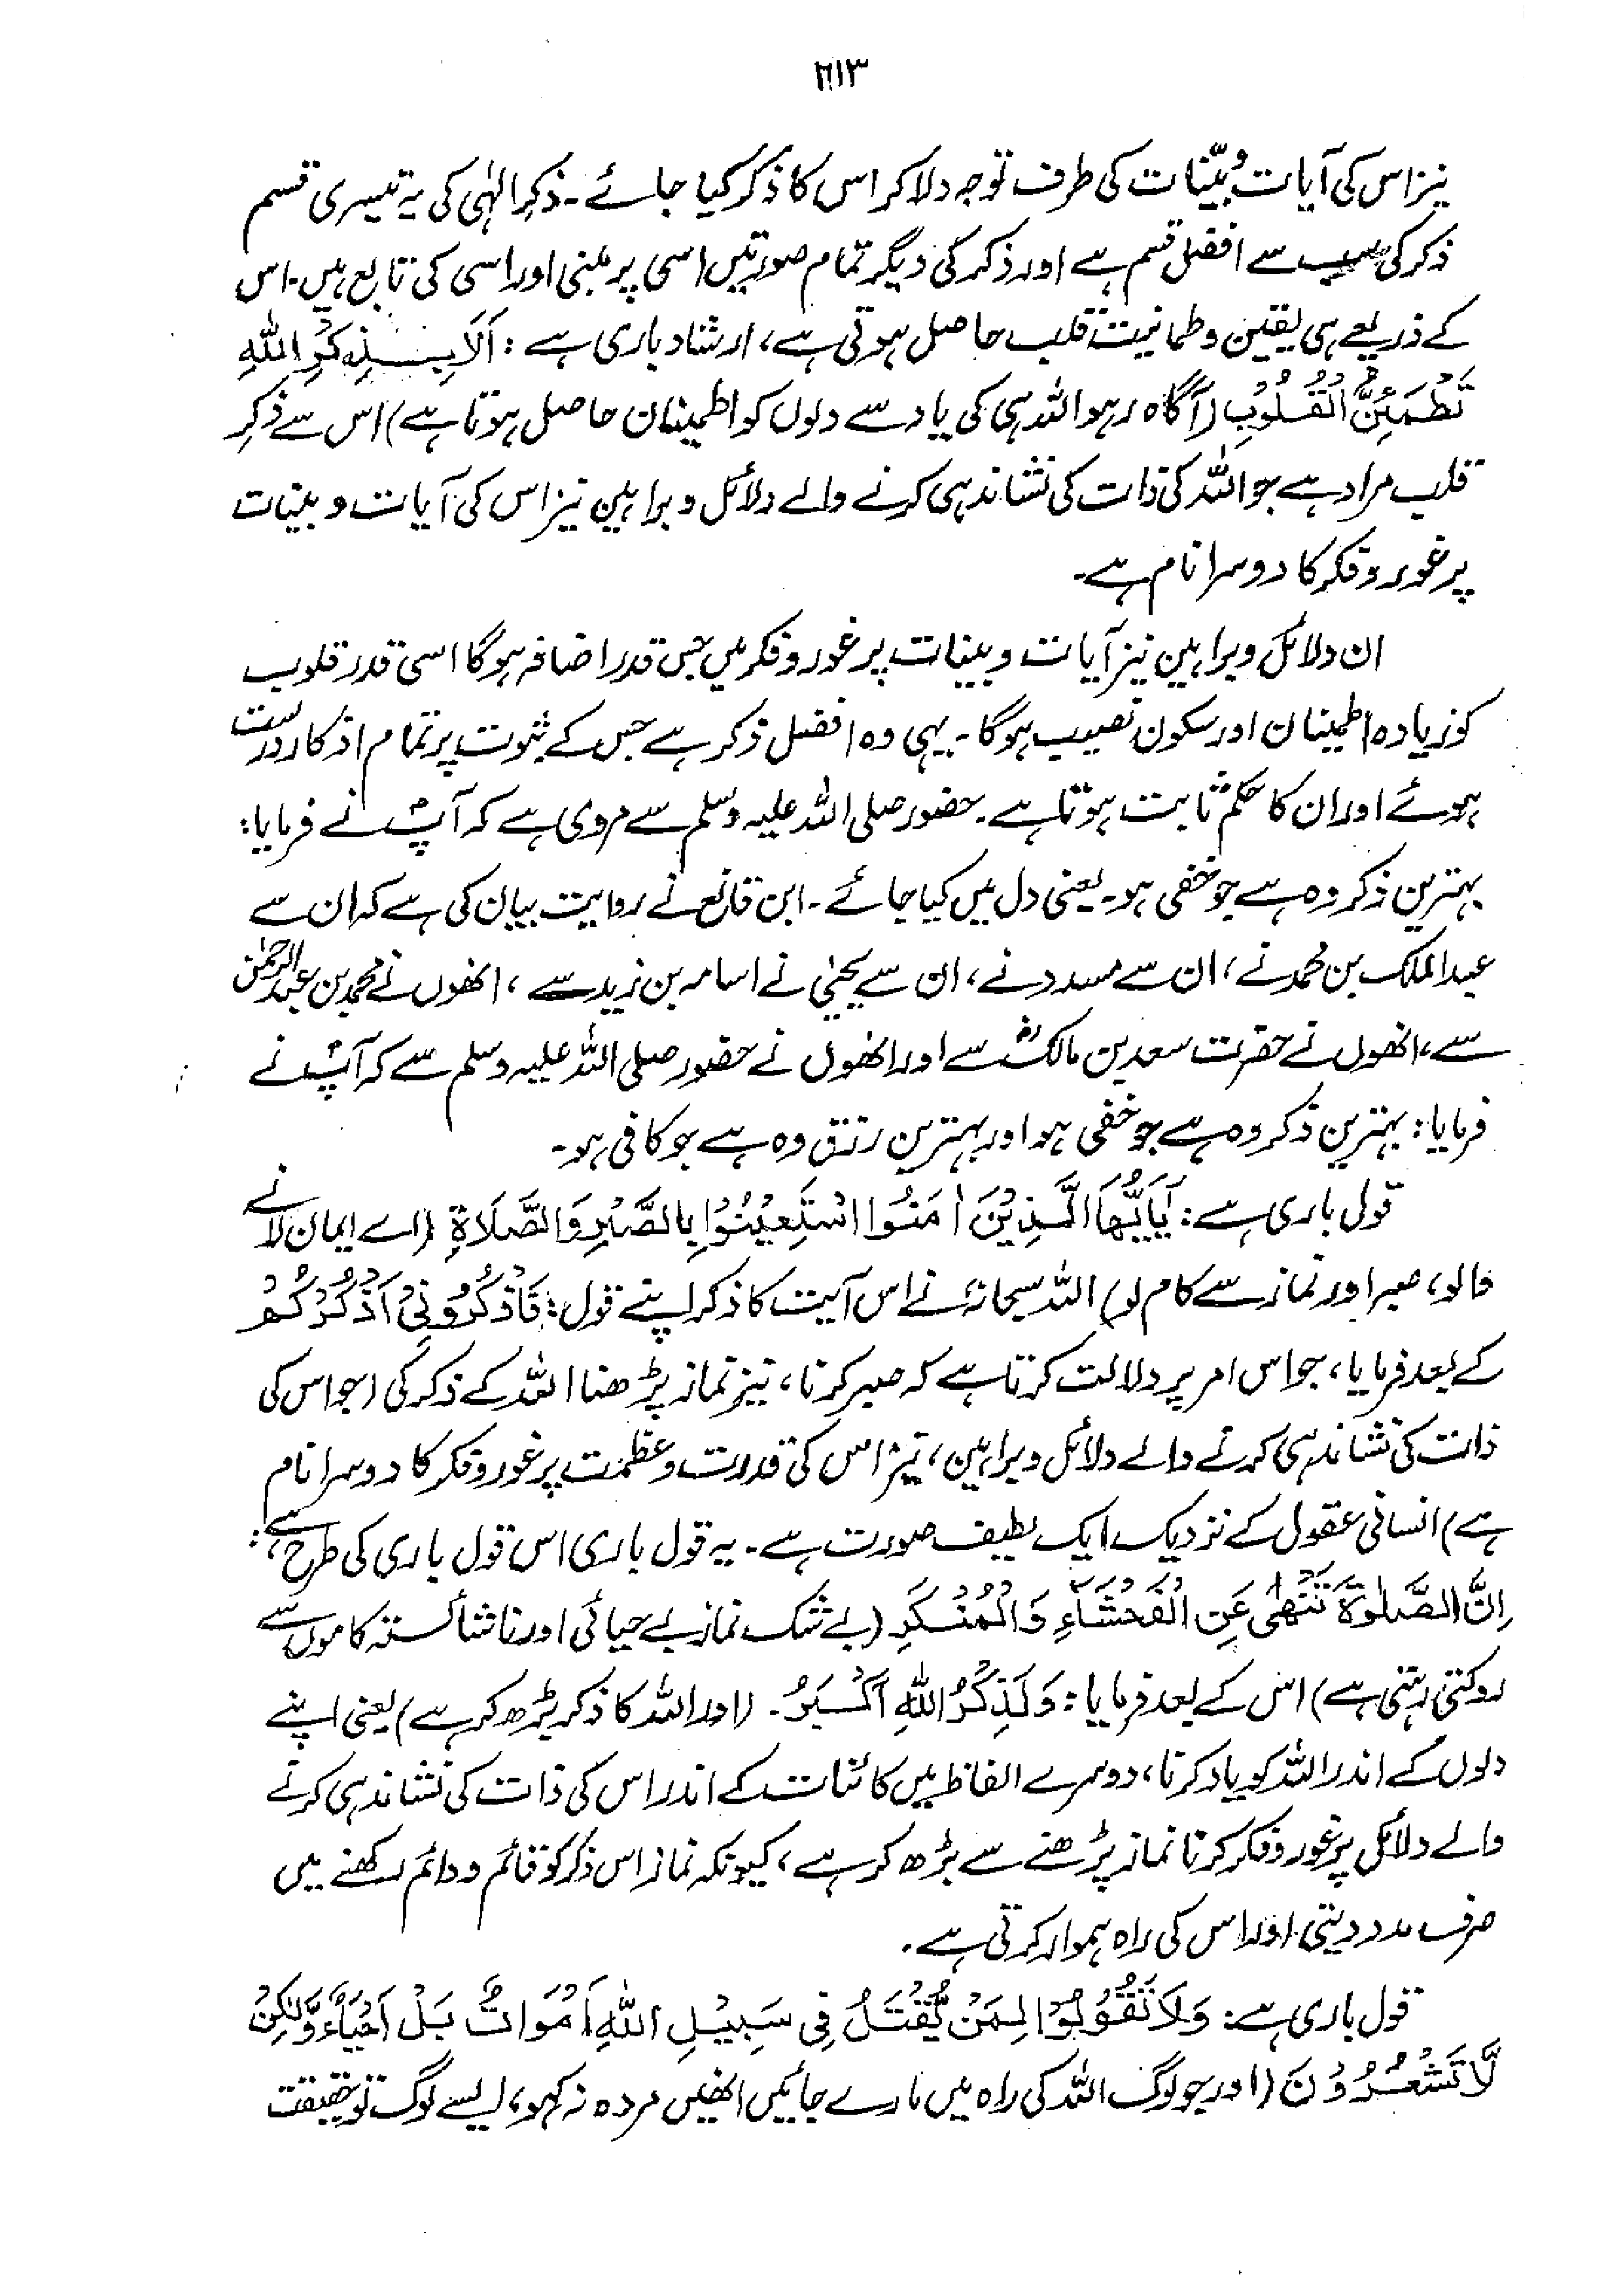 ۲۱۳
نیز اس کی آیات و بیّنات کی طرف توجہ دلا کر اس کا ذکر کیا جائے۔ ذکرِ الٰہی کی یہ تیسری قسم
ذکر کی سب سے افضل قسم ہے اور ذکر کی دیگر تمام صورتیں اسی پر مبنی اور اسی کی تابع ہیں۔ اس
کے ذریعے ہی یقین و طمانیت قلب حاصل ہوتی ہے، ارشاد باری ہے: اَلَا بِذِکْرِ اللّٰہِ
تَطْمَئِنُّ الْقُلُوْبِ (آگاہ رہو اللہ ہی کی یاد سے دلوں کو اطمینان حاصل ہوتا ہے) اس سے ذکرِ
قلب مراد ہے جو اللہ کی ذات کی نشاندہی کرنے والے دلائل و براہین نیز اس کی آیات و بینات
پر غور و فکر کا دوسرا نام ہے۔
ان دلائل و براہین نیز آیات و بینات پر غور و فکر میں جس قدر اضافہ ہوگا اسی قدر قلوب
کو زیادہ اطمینان اور سکون نصیب ہوگا۔ یہی وہ افضل ذکر ہے جس کے ثبوت پر تمام اذکار درست
ہوئے اور ان کا حکم ثابت ہوتا ہے۔ حضور صلی اللہ علیہ وسلم سے مروی ہے کہ آپؐ نے فرمایا:
بہترین ذکر وہ ہے جو خفی ہو۔ یعنی دل میں کیا جائے۔ ابن قانع نے روایت بیان کی ہے کہ ان سے
عبد الملک بن محمد نے، ان سے مسدد نے، ان سے یحیٰی نے اسامہ بن زید سے، انھوں نے محمد بن عبد الرحمٰن
سے، انھوں نے حضرت سعد بن مالکؓ سے اور انھوں نے حضور صلی اللہ علیہ وسلم سے کہ آپؐ نے
فرمایا: بہترین ذکر وہ ہے جو خفی ہو اور بہترین رزق وہ ہے جو کافی ہو۔
قول باری ہے: یَاَیُّھَا الَّذِیْنَ اٰمَنُوا اسْتَعِیْنُوْا بِالصَّبْرِ وَالصَّلَاۃِ (اے ایمان لانے
والو، صبر اور نماز سے کام لو) اللہ سبحانہٗ نے اس آیت کا ذکر اپنے قول: فَاذْکُرُوْنِیْ اَذْکُرْکُمْ
کے بعد فرمایا، جو اس امر پر دلالت کرتا ہے کہ صبر کرنا، نیز نماز پڑھنا اللہ کے ذکر کی (جو اس کی
ذات کی نشاندہی کرنے والے دلائل و براہین، نیز اس کی قدرت و عظمت پر غور و فکر کا دوسرا نام
ہے) انسانی عقول کے نزدیک ایک لطیف صورت ہے۔ یہ قول باری اس قول باری کی طرح ہے:
اِنَّ الصَّلٰوۃَ تَنْھٰی عَنِ الْفَحْشَآءِ وَالْمُنْکَرِ (بے شک نماز بے حیائی اور ناشائستہ کاموں سے
روکتی رہتی ہے) اس کے بعد فرمایا: وَلَذِکْرُ اللّٰہِ اَکْبَرُ۔ (اور اللہ کا ذکر بڑھ کر ہے) یعنی اپنے
دلوں کے اندر اللہ کو یاد کرنا، دوسرے الفاظ میں کائنات کے اندر اس کی ذات کی نشاندہی کرنے
والے دلائل پر غور و فکر کرنا نماز پڑھنے سے بڑھ کر ہے، کیونکہ نماز اس ذکر کو قائم و دائم رکھنے میں
صرف مدد دیتی اور اس کی راہ ہموار کرتی ہے۔
قول باری ہے: وَلَا تَقُوْلُوْا لِمَنْ یُّقْتَلُ فِی سَبِیْلِ اللّٰہِ اَمْوَاتٌ بَلْ اَحْیَاءٌ وَّلٰکِنْ
لَّا تَشْعُرُوْنَ (اور جو لوگ اللہ کی راہ میں مارے جائیں انھیں مردہ نہ کہو، ایسے لوگ تو حقیقت